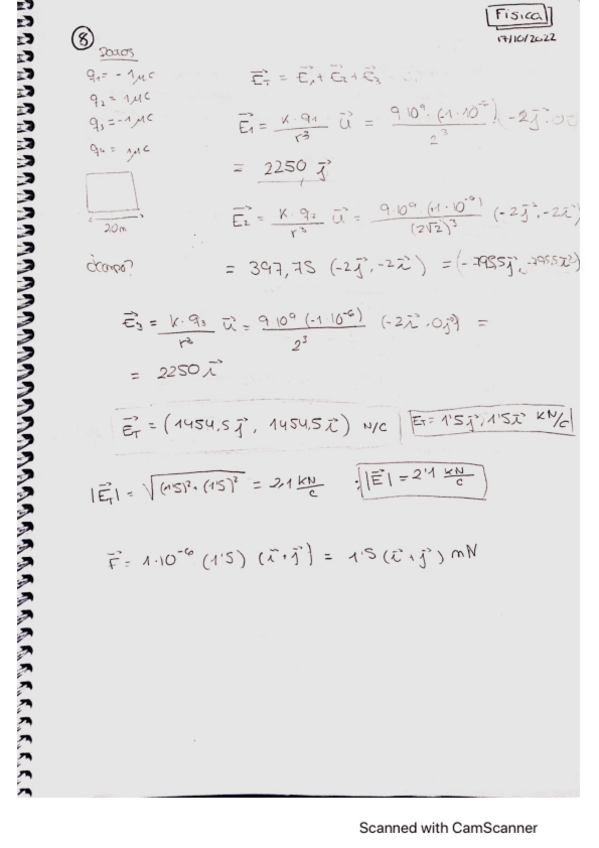 Física
17/10/2022
8
Datos
q₁ = -1μC
q₂ = 1μC
q₃ = -1μC
q₄ = 1μC
20m
¿campo?
E⃗_T = E⃗₁ + E⃗₂ + E⃗₃
E⃗₁ = K·q₁/r³ u⃗ = 9·10⁹·(-1·10⁻⁶)/2³ (-2j⃗
= 2250 j⃗
E⃗₂ = K·q₂/r³ u⃗ = 9·10⁹·(1·10⁻⁶)/(2√2)³ (-2j⃗, -2i⃗)
= 397,75 (-2j⃗, -2i⃗) = (-795,5j⃗, -795,5i⃗)
E⃗₃ = K·q₃/r² u⃗ = 9·10⁹ (-1·10⁻⁶)/2³ (-2i⃗, 0j⃗) =
= 2250 i⃗
E⃗_T = (1454,5 j⃗, 1454,5 i⃗) N/C
E_T = 1'5 j⃗, 1'5 i⃗ KN/C
|E⃗_T| = √((1'5)² + (1'5)²) = 2,1 KN/C ; |E⃗| = 2'1 KN/C
F⃗ = 1·10⁻⁶ (1'5) (i⃗ + j⃗) = 1'5 (i⃗ + j⃗) mN
Scanned with CamScanner